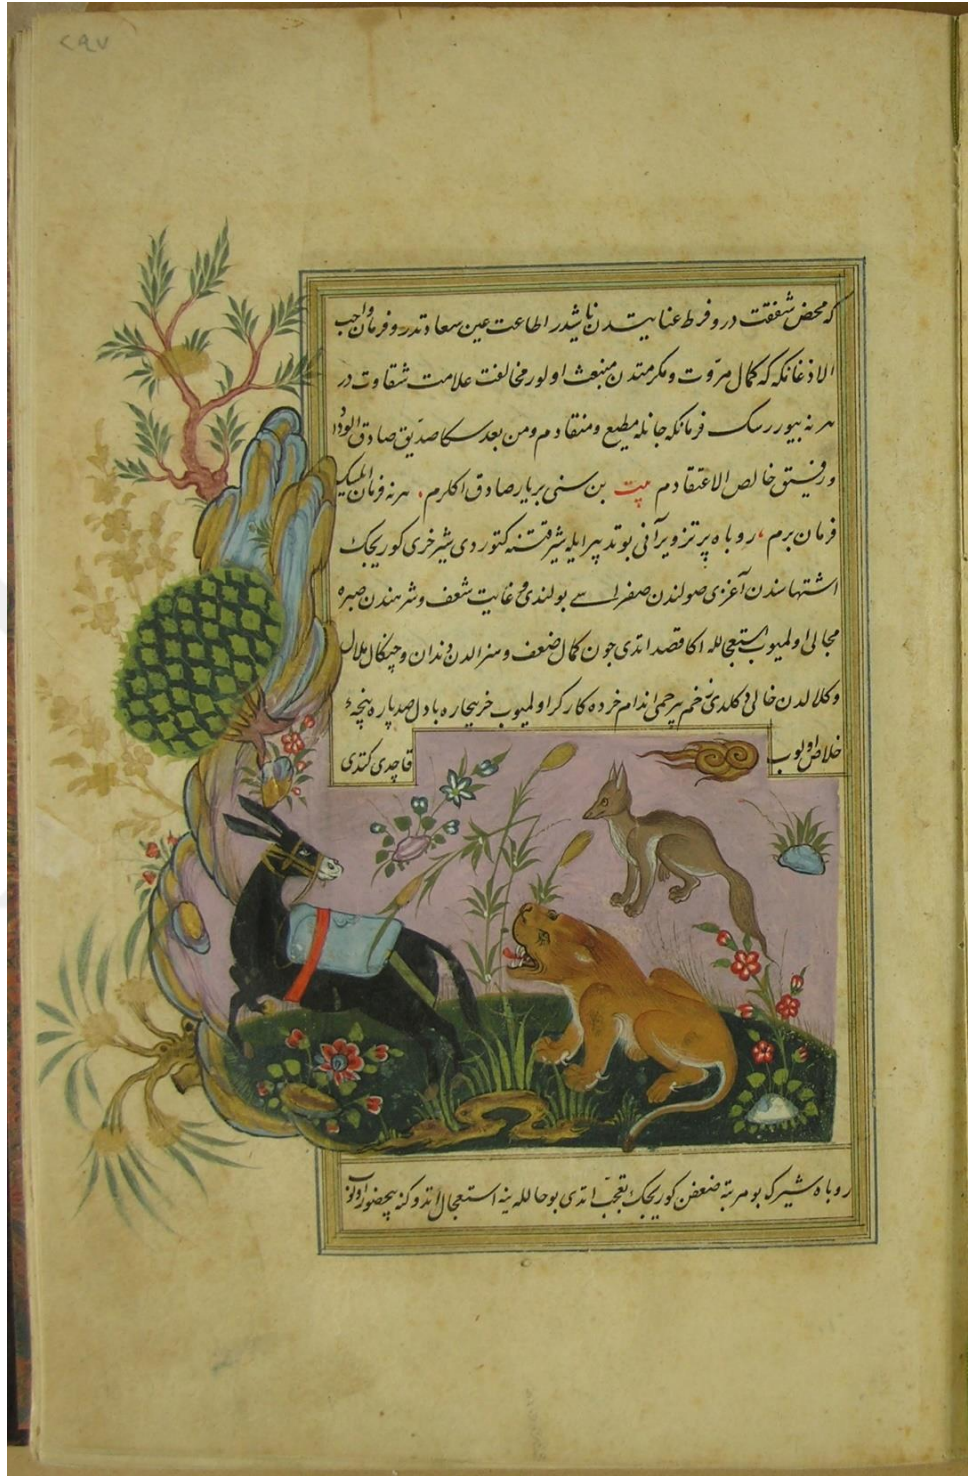 ٢٩٧
که محض شفقت در و فرط عنایتدن ناشیدر اطاعت عین سعادتدر و فرمان واجب
الاذعانکه که کمال مروّت و مکرمتدن منبعث اولور مخالفت علامت شقاوت در
هر نه بیوررسک فرمانکه جانله مطیع و منقادم و من بعد سکا صدیق صادق الوداد
و رفیق خالص الاعتقادم بیت بن سنی بر یار صادق اکلرم، هر نه فرمان ایلسک
فرمان برم، روباه پر تزویر آنی بو تدبیر ایله شیر قتنه کتوردی شیر خری کوریجک
اشتهاسندن آغزی صولندن صفراسی بولندی غایت شعف و شرهندن صبره
مجالی اولمیوب استعجالله اکا قصد اتدی چون کمال ضعف و هزالدن دندان و چنکال ملال
و کلالدن خالی دکلدی زخم بیرحمی اندام خرده کارکر اولمیوب خر بیچاره با دل صد پاره پنجهٔ
خلاص اولوب قاچدی کتدی
روباه شیرک بو مرتبه ضعفن کوریجک تعجب اتدی بو حالله ینه استعجال اتدوکنه